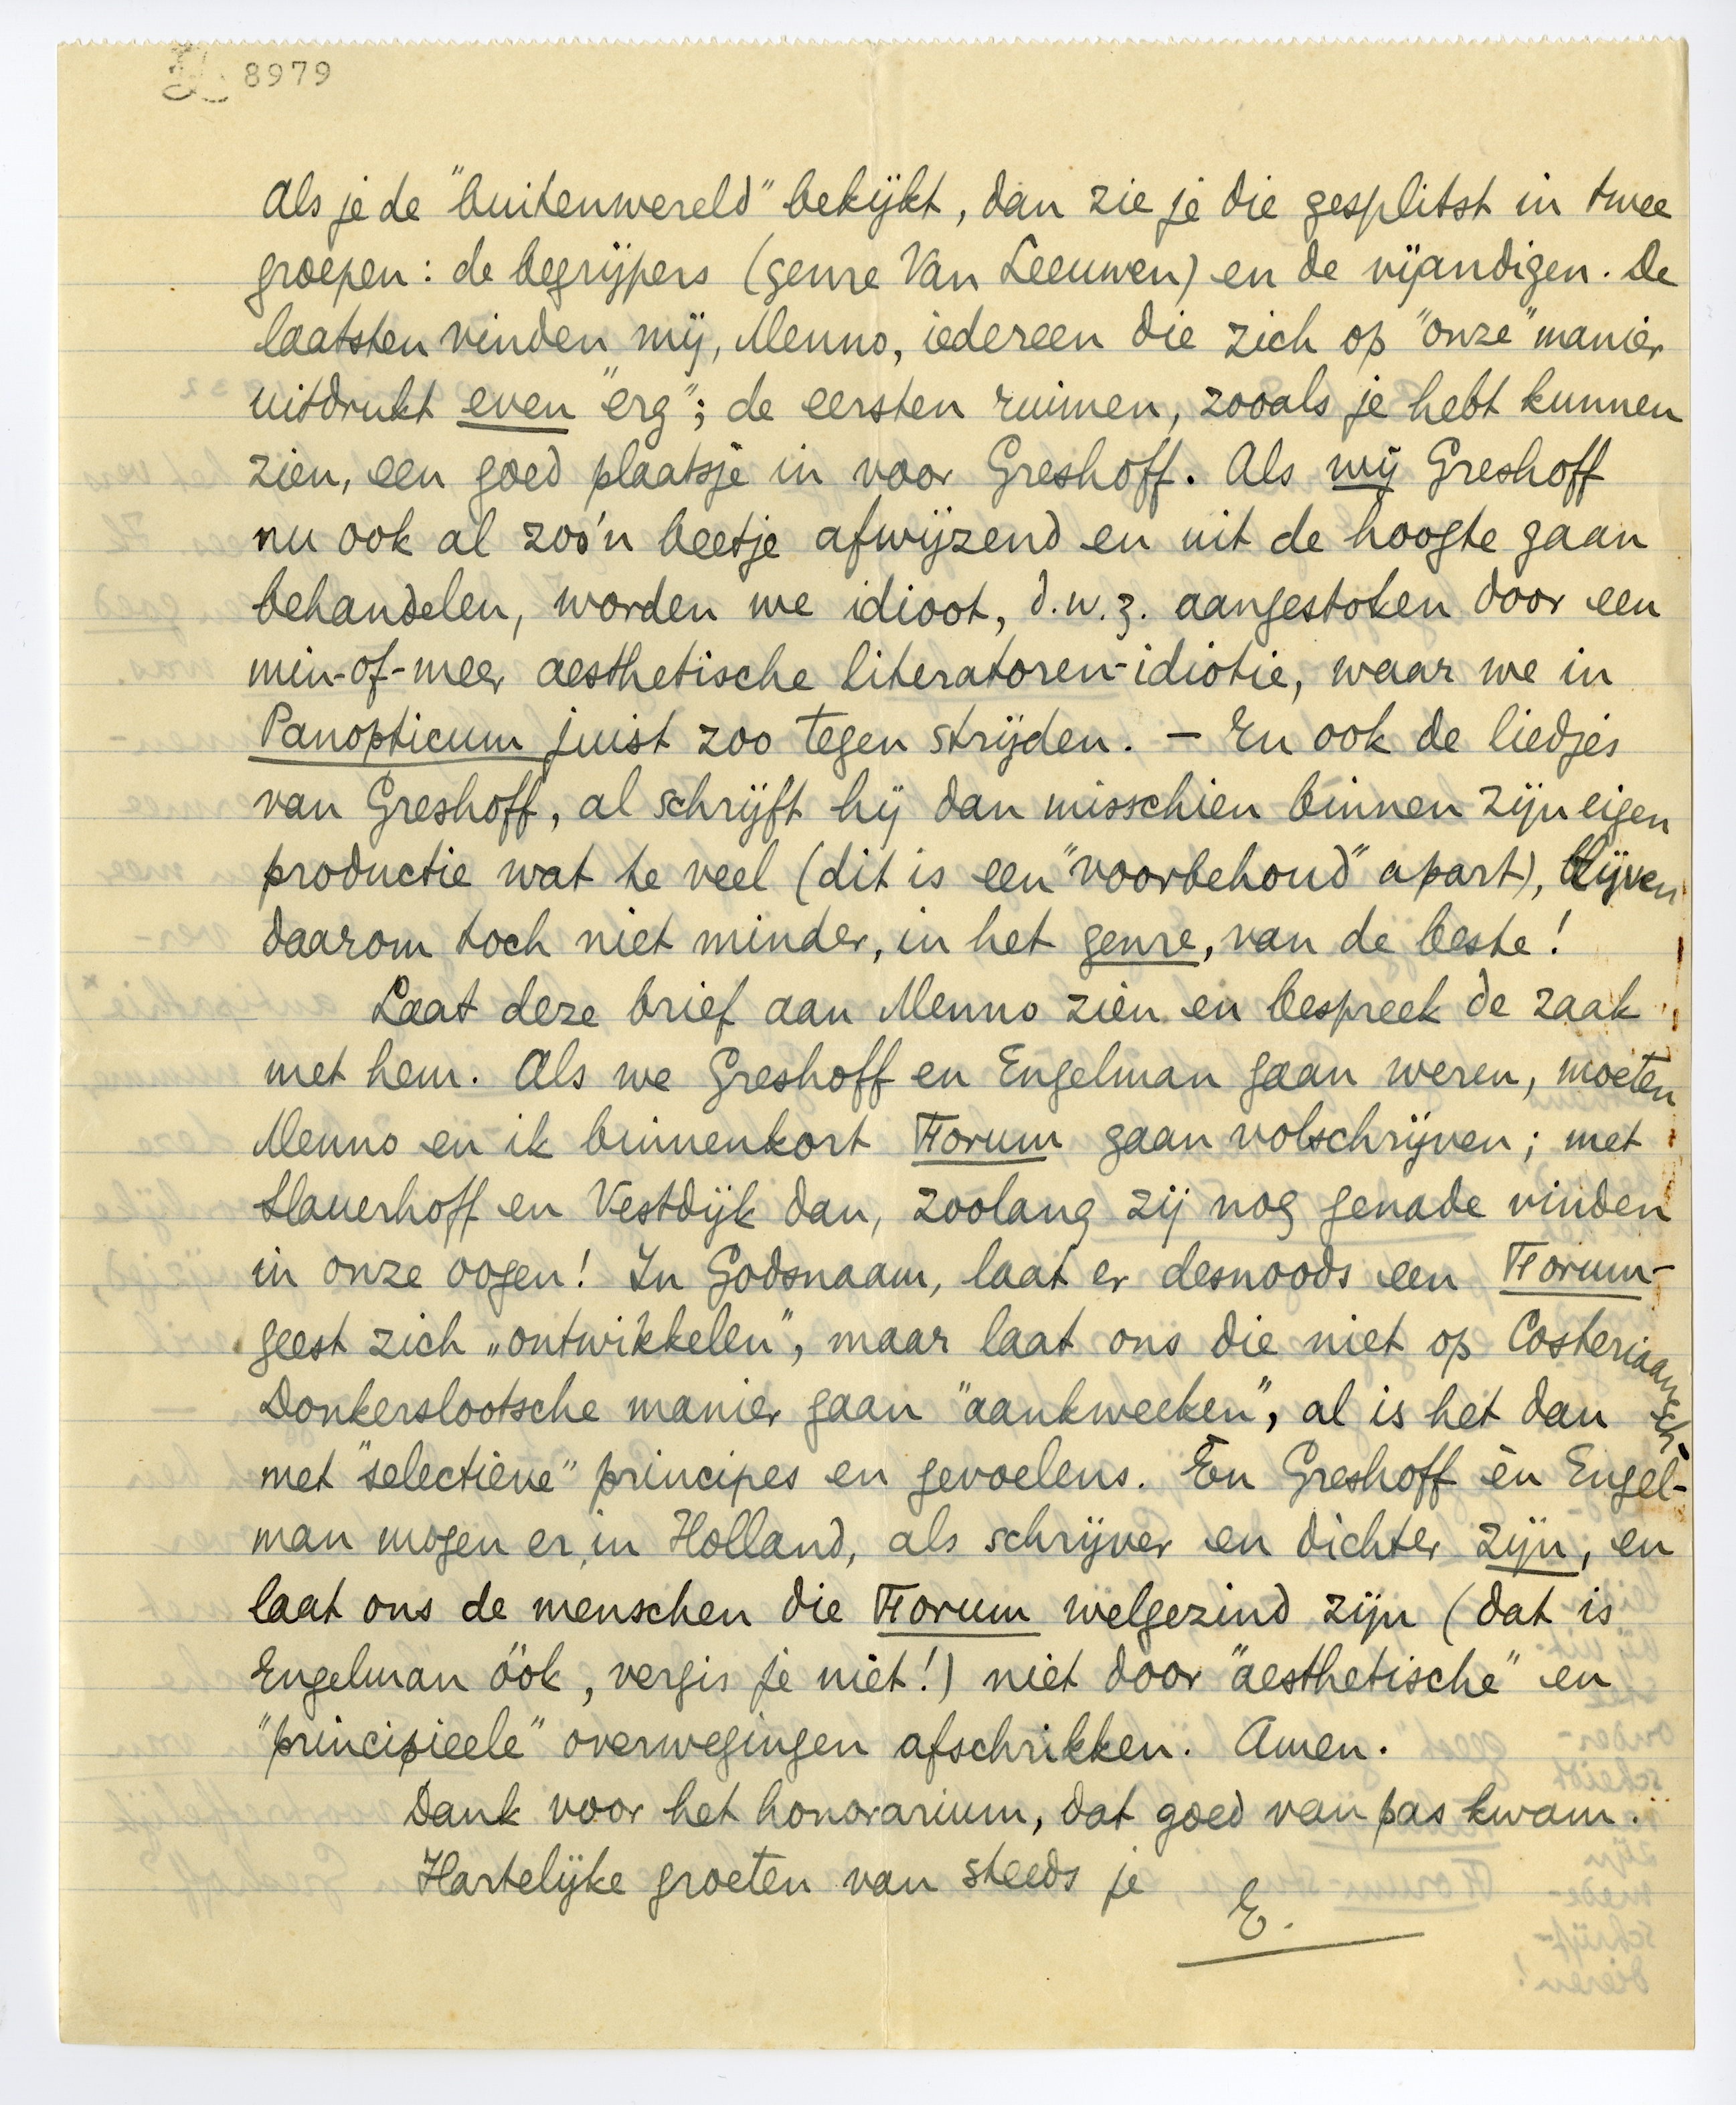 8979
Als je de "buitenwereld" bekijkt, dan zie je die gesplitst in twee
groepen: de begrijpers (genre Van Leeuwen) en de vijandigen. De
laatsten vinden mij, Menno, iedereen die zich op "onze" manier
uitdrukt even "erg"; de eersten ruimen, zooals je hebt kunnen
zien, een goed plaatsje in voor Greshoff. Als wij Greshoff
nu ook al zoo'n beetje afwijzend en uit de hoogte gaan
behandelen, worden we idioot, d.w.z. aangestoken door een
min-of-meer aesthetische literatoren-idiotie, waar we in
Panopticum juist zoo tegen strijden. – En ook de liedjes
van Greshoff, al schrijft hij dan misschien binnen zijn eigen
productie wat te veel (dit is een "voorbehoud" apart), blijven
daarom toch niet minder, in het genre, van de beste!
Laat deze brief aan Menno zien en bespreek de zaak
met hem. Als we Greshoff en Engelman gaan weren, moeten
Menno en ik binnenkort Forum gaan volschrijven; met
Slauerhoff en Vestdijk dan, zoolang zij nog genade vinden
in onze oogen! In Godsnaam, laat er desnoods een Forum-
geest zich „ontwikkelen", maar laat ons die niet op Costeriaansch-
Donkerslootsche manier gaan "aankweeken", al is het dan
met "selectieve" principes en gevoelens. Èn Greshoff èn Engel-
man mogen er, in Holland, als schrijver en dichter zijn, en
laat ons de menschen die Forum welgezind zijn (dat is
Engelman óók, vergis je niet!) niet door "aesthetische" en
"principieele" overwegingen afschrikken. Amen.
Dank voor het honorarium, dat goed van pas kwam.
Hartelijke groeten van steeds je
E.